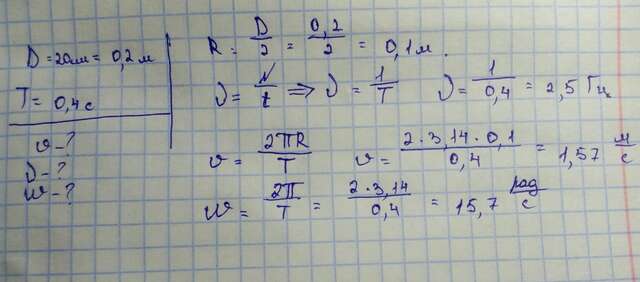 D = 20см = 0,2 м
T = 0,4 с
υ - ?
ν - ?
ω - ?
R = D/2 = 0,2/2 = 0,1 м.
ν = N/t ⟹ ν = 1/T ν = 1/0,4 = 2,5 Гц
υ = 2πR/T υ = 2·3,14·0,1/0,4 = 1,57 м/с
ω = 2π/T = 2·3,14/0,4 = 15,7 рад/с